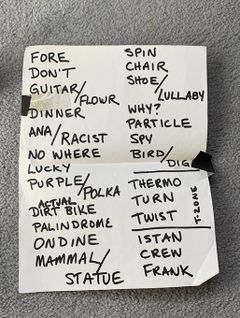 FORE
DON'T
GUITAR/FLOUR
DINNER
ANA/RACIST
NO WHERE
LUCKY
PURPLE/POLKA
ACTUAL
DIRT BIKE
PALINDROME
ONDINE
MAMMAL/STATUE
SPIN
CHAIR
SHOE/LULLABY
WHY?
PARTICLE
SPY
BIRD/DIG
THERMO
TURN
TWIST
T-ZONE
ISTAN
CREW
FRANK